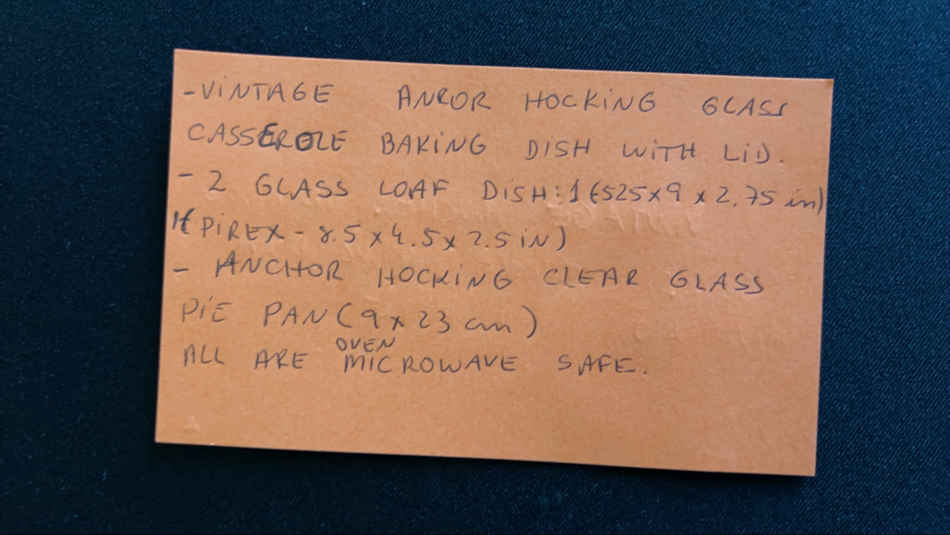 -VINTAGE ANROR HOCKING GLASS
CASSEROLE BAKING DISH WITH LID.
- 2 GLASS LOAF DISH: 1(525x9x2.75 in)
1(PIREX-8.5x4.5x2.5 IN)
- ANCHOR HOCKING CLEAR GLASS
PIE PAN (9x23 cm)
OVEN
ALL ARE MICROWAVE SAFE.